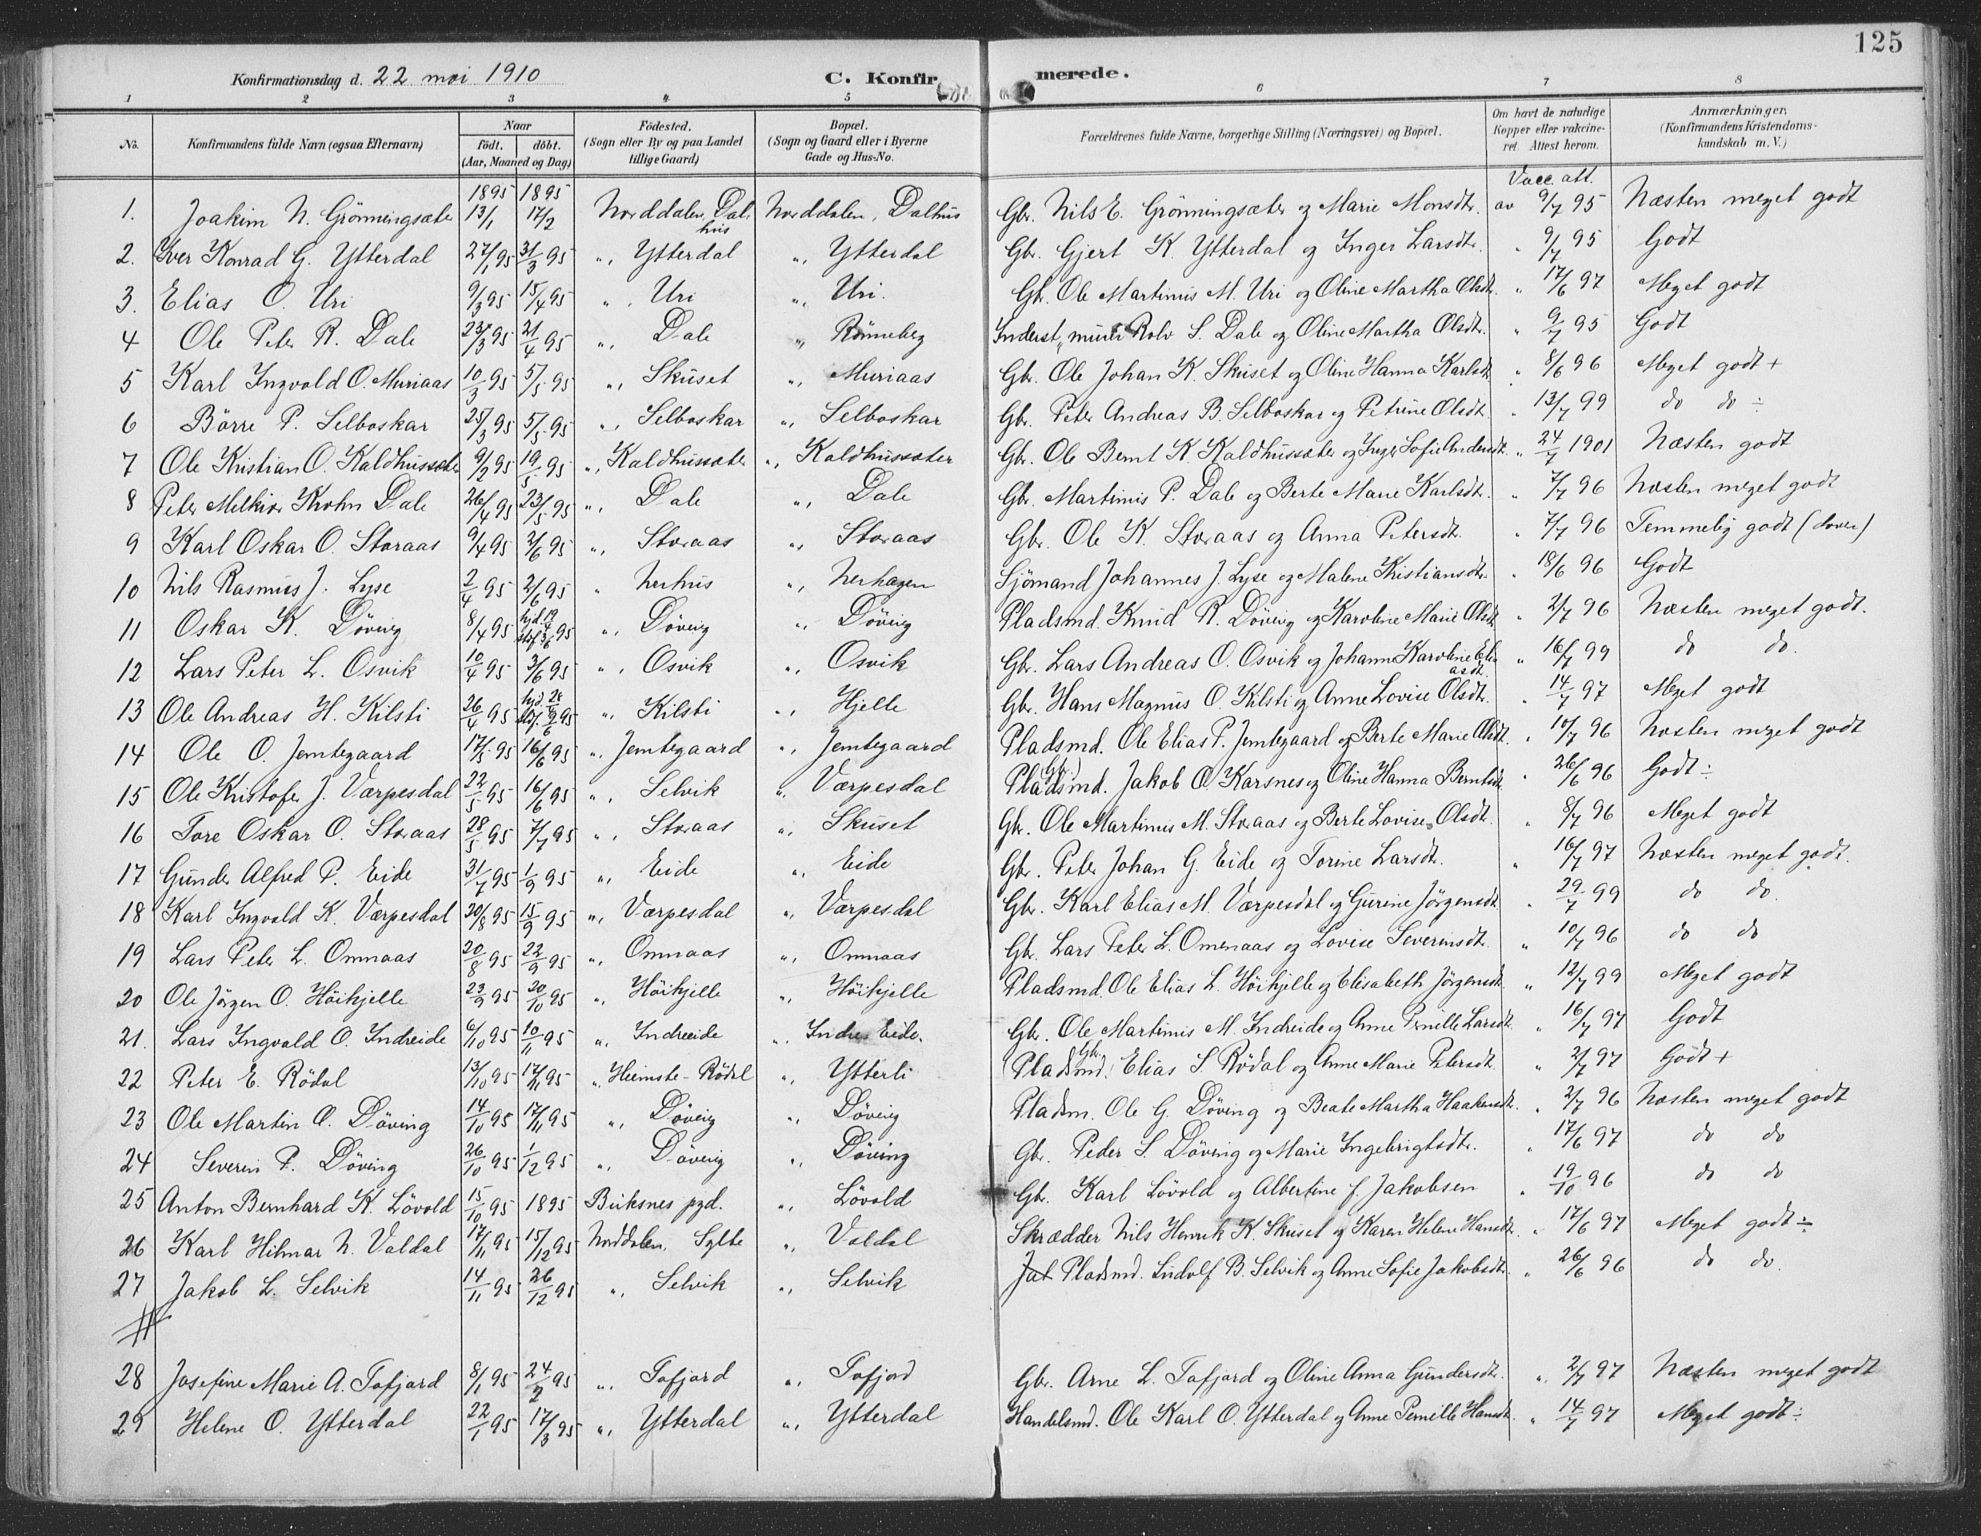 125
Konfirmationsdag d. 22 mai 1910 C. Konfirmerede.
1 2 3 4 5 6 7 8
No. Konfirmandens fulde Navn (ogsaa Efternavn) Naar født. døbt. (Aar, Maaned og Dag) Fødested. (Sogn eller By og paa Landet tillige Gaard) Bopæl. (Sogn og Gaard eller i Byerne Gade og Hus-No. Forældrenes fulde Navne, borgerlige Stilling (Næringsvei) og Bopæl. Om havt de naturlige Kopper eller vakcineret. Attest herom. Anmærkninger. (Konfirmandens Kristendomskundskab m. V.)
1895 1895 Vacc. att.
1. Joakim N. Grönningsæter 13/1 17/2 Norddalen, Dalhus Norddalen, Dalhus Gbr. Nils E. Grönningsæter og Marie Monsdtr. av 9/7 95 Næsten meget godt
2. Iver Konrad G. Ytterdal 27/1 95 31/3 95 " Ytterdal " Ytterdal Gbr. Gjert K. Ytterdal og Inger Larsdtr. " 9/7 95 Godt
3. Elias O. Uri 9/3 95 15/4 95 " Uri " Uri. Gbr. Ole Martinus M. Uri og Oline Martha Olsdtr. " 17/6 97 Meget godt
4 Ole Peter R. Dale 23/3 95 21/4 95 " Dale " Rönneberg Inderst, murer Rolv S. Dale og Oline Martha Olsdtr. " 9/7 95 Godt
5 Karl Ingvald O. Muriaas 10/3 95 5/5 95 " Skuset " Muriaas Gbr. Ole Johan K. Skuset og Oline Hanna Karlsdtr " 8/6 96 Meget godt +
6 Börre P. Selboskar 25/3 95 5/5 95 " Selboskar " Selboskar Gbr. Peter Andreas B. Selboskar og Petrine Olsdt. " 13/7 99 do do ÷
7 Ole Kristian O. Kaldhussæter 9/2 95 19/5 95 " Kaldhussæter " Kaldhussæter Gbr. Ole Bernt K. Kaldhussæter og Inger Sofie Andersdt. " 24/7 1901 Næsten godt
8 Peter Melkior Krohn Dale 26/4 95 23/5 95 " Dale " Dale Gbr. Martinus P. Dale og Berte Marie Karlsdt. " 7/7 96 Næsten meget godt
9 Karl Oskar O. Storaas 9/4 95 2/6 95 " Storaas " Storaas Gbr. Ole K. Storaas og Anna Petersdt. " 7/7 96 Temmelig godt (dover)
10 Nils Rasmus J. Lyse 2/4 95 2/6 95 " Nerhus " Nerhagen Sjömand Johannes J. Lyse og Malene Kristiansdtr. " 18/6 96 Godt
11 Oskar K. Döving 8/4 95 hjd. 19/4 stf. 3/6 95 " Döving " Döving Pladsmd. Knud R. Döving og Karoline Marie Olsdt. " 2/7 96 Næsten meget godt.
12 Lars Peter L. Osvik 10/4 95 3/6 95 " Osvik " Osvik Gbr. Lars Andreas O. Osvik og Johanne Karoline Eliasdt. " 16/7 99 do do.
13 Ole Andreas H. Kilsti 26/4 95 hjd. stf. 9/6 95 " Kilsti " Hjelle Gbr. Hans Magnus O. Kilsti og Anne Lovise Olsdt. " 14/7 97 Meget godt
14 Ole O. Jemtegaard 17/5 95 16/6 95 " Jemtegaard " Jemtegaard Pladsmd. Ole Elias P. Jemtegaard og Berte Marie Olsdt. " 10/7 96 Næsten meget godt
15 Ole Kristofer J. Værpesdal 22/5 95 16/6 95 " Selvik " Værpesdal Pladsmd. (Gbr.) Jakob O. Karsnes og Oline Hanna Berntsdt " 26/6 96 Godt ÷
16 Tore Oskar O. Storaas 28/5 95 7/7 95 " Storaas " Skuset Gbr. Ole Martinus M. Storaas og Berte Lovise Olsdt. " 8/7 96 Meget godt
17 Gunder Alfred P. Eide 31/7 95 1/9 95 " Eide " Eide Gbr. Peter Johan G. Eide og Torine Larsdt. " 16/7 97 Næsten meget godt.
18 Karl Ingvald K. Værpesdal 20/8 95 15/9 95 " Værpesdal " Værpesdal Gbr. Karl Elias M. Værpesdal og Gurine Jörgensdt. " 29/7 99 do do.
19 Lars Peter L. Omnaas 20/8 95 22/9 95 " Omnaas " Omnaas Gbr. Lars Peter L. Omenaas og Lovise Severinsdt. " 10/7 96 do do
20 Ole Jörgen O. Höihjelle 23/9 95 20/10 95 " Höihjelle " Höihjelle Pladsmd. Ole Elias L. Höihjelle og Elisabeth Jörgensdt. " 12/7 99 Meget godt
21. Lars Ingvald O. Indreide 6/10 95 10/11 95 " Indreide " Indre Eide. Gbr. Ole Martinus M. Indreide og Anne Pernille Larsdt. " 16/7 97 Godt
22 Peter E. Rödal 13/10 95 17/11 95 " Heimste-Rödal " Ytterli Pladsmd. Gbr. Elias S. Rödal og Anne Marie Petersdt. " 2/7 97 Godt +
23 Ole Martin O. Döving 14/10 95 17/11 95 " Döving " Döving Pladsm. Ole G. Döving og Beate Martha Haakensdt. " 2/7 96 Næsten meget godt
24 Severin P. Döving 26/10 95 1/12 95 " Döving " Döving Gbr. Peder S. Döving og Marie Ingebrigtsdt. " 17/6 97 do do
25 Anton Bernhard K. Lövold 15/10 95 1895 Buksnes pgd. " Lövold Gbr. Karl Lövold og Albertine f. Jakobsen " 19/10 96 do do
26 Karl Hilmar N. Valdal 17/11 95 15/12 95 Norddalen, Sylte " Valdal Skrædder Nils Henrik K. Skuset og Karen Helene Hansdt. " 17/6 97 Meget godt ÷
27 Jakob L. Selvik 14/11 95 26/12 95 " Selvik " Selvik Jak Pladsmd. Ludolf B. Selvik og Anne Sofie Jakobsdt. " 26/6 96 do do.
28 Josefine Marie A. Tafjord 8/1 95 24/2 95 " Tafjord " Tafjord Gbr. Arne L. Tafjord og Oline Anna Gundersdt. " 2/7 97 Næsten meget godt
29 Helene O. Ytterdal 22/1 95 17/3 95 " Ytterdal " Ytterdal Handelsmd. Ole Karl O. Ytterdal og Anne Pernille Hansdt. " 14/7 97 Meget godt ÷